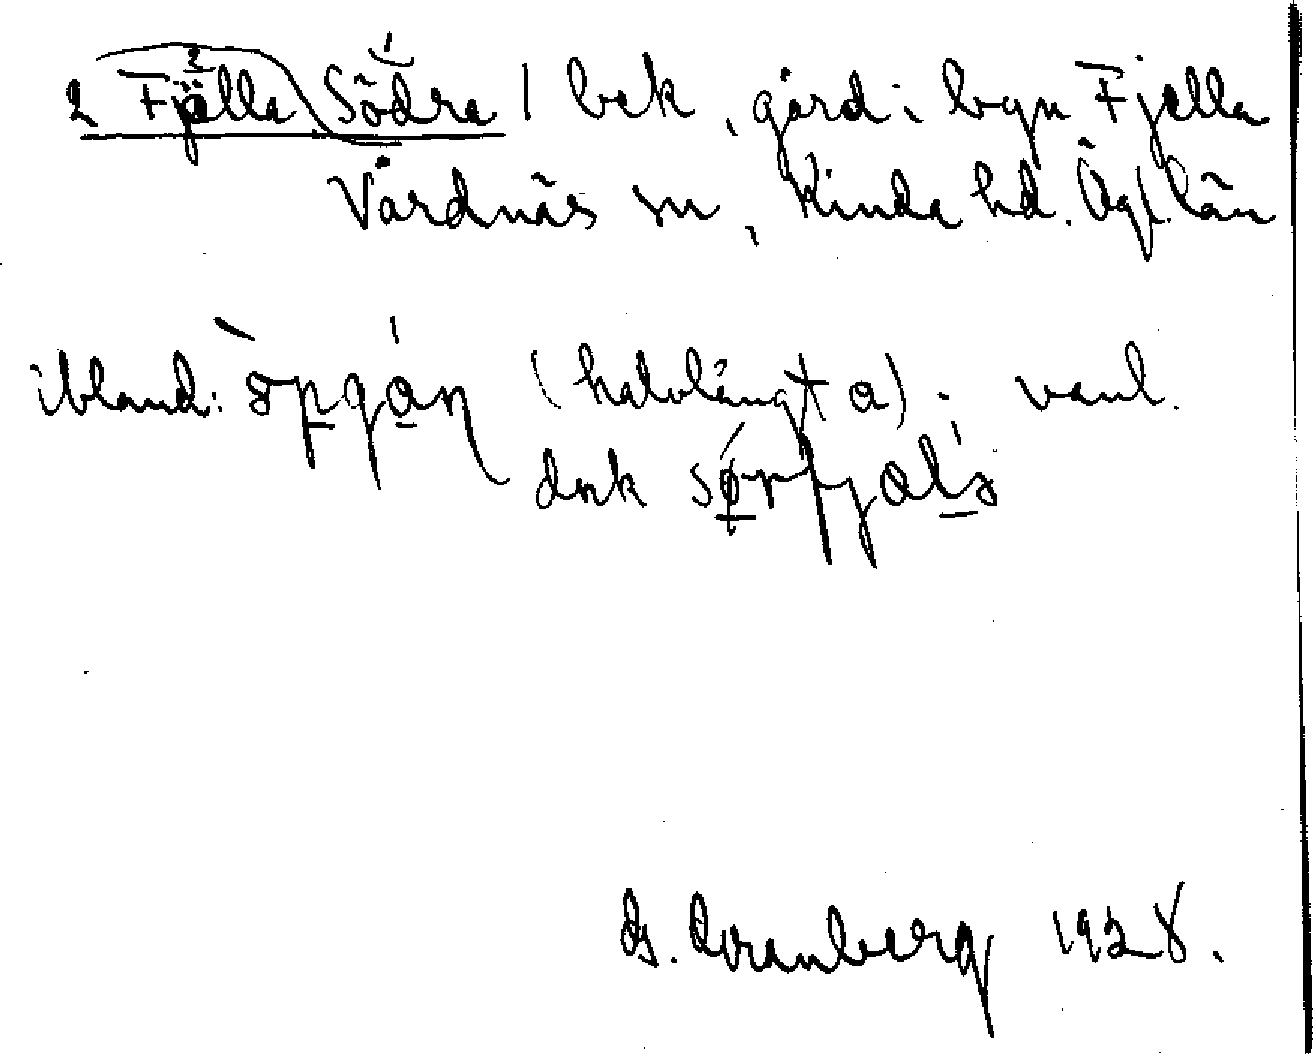 2 Fjälla Södra 1 bek, gård i byn Fjella
Vårdnäs sn, Kinda hd. Ögl. län
ibland: (halvlångt a). vanl.
dock
G. Granberg 1928.